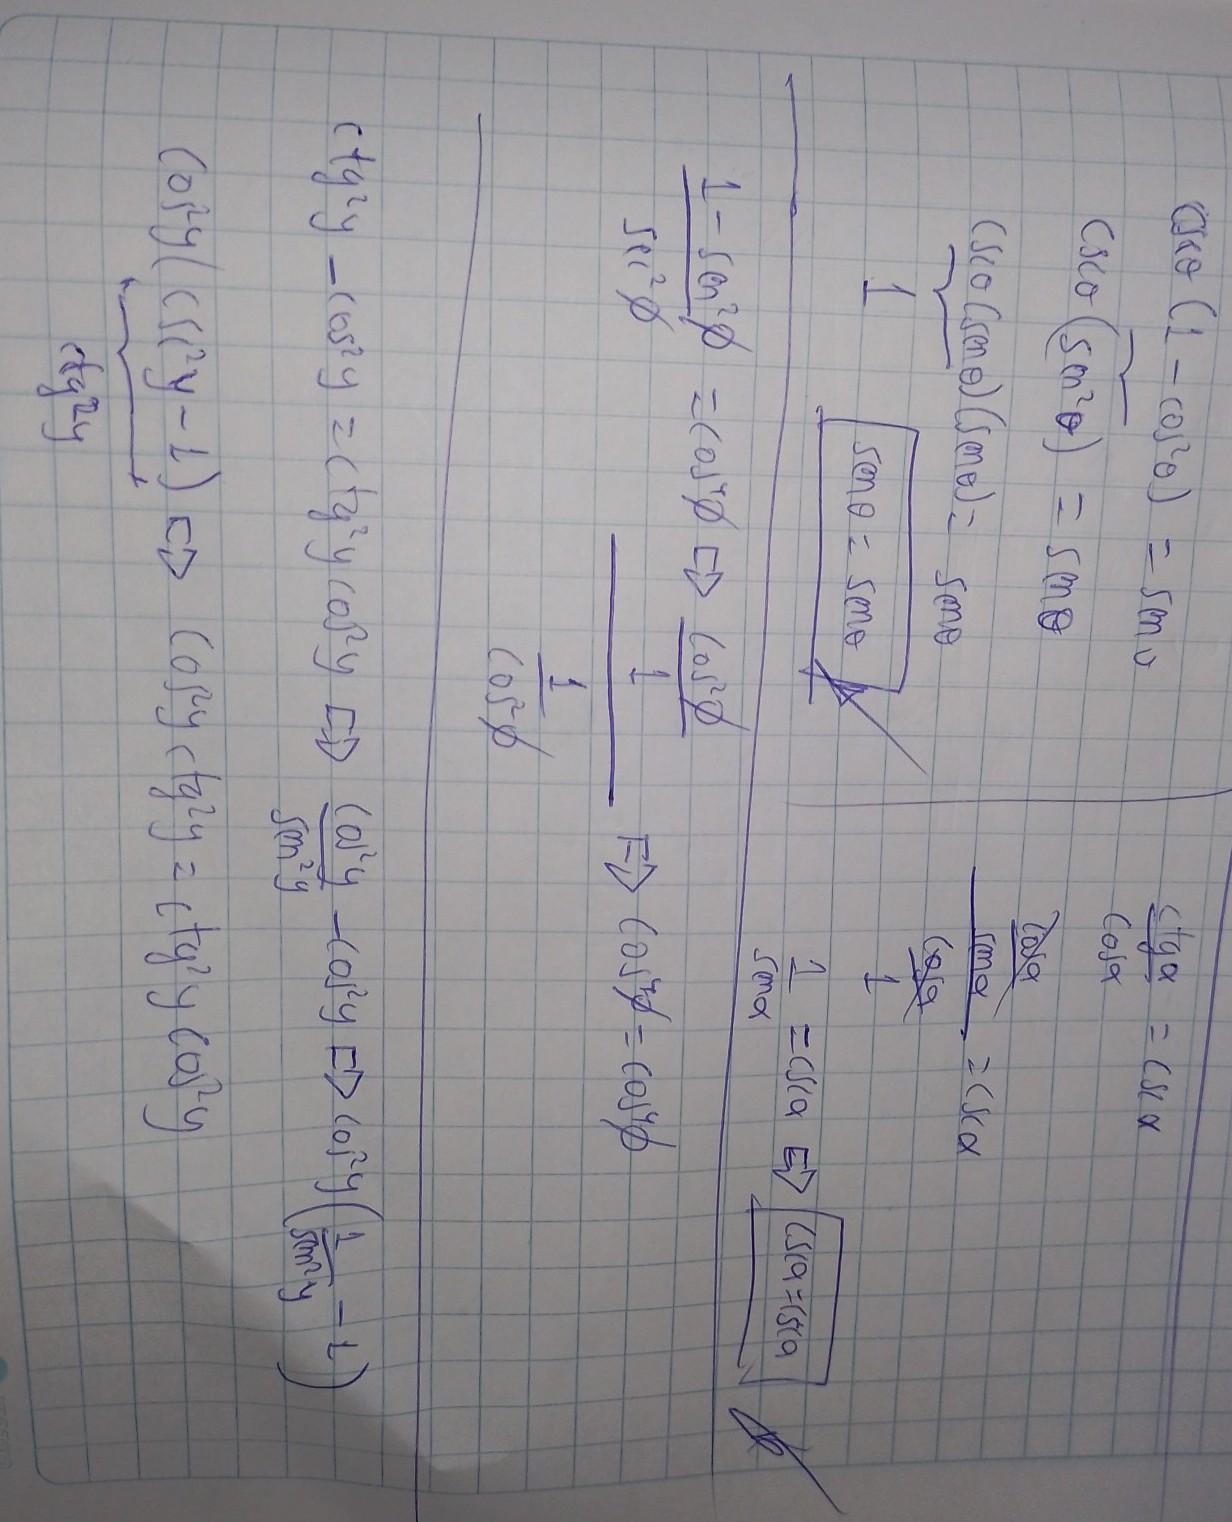 cscθ (1 - cos²θ) = senθ
cscθ (sen²θ) = senθ
cscθ (senθ)(senθ) = senθ
1
senθ = senθ
ctgα / cosα = cscα
cosα / senα / cosα / 1 = cscα
1 / senα = cscα ⇨ cscα = cscα
1 - sen²φ / sec²φ = cos⁴φ ⇨ cos²φ / 1 / 1 / cos²φ ⇨ cos⁴φ = cos⁴φ
ctg²y - cos²y = ctg²y cos²y ⇨ cos²y / sen²y - cos²y ⇨ cos²y (1 / sen²y - 1)
cos²y (csc²y - 1) ⇨ cos²y ctg²y = ctg²y cos²y
ctg²y